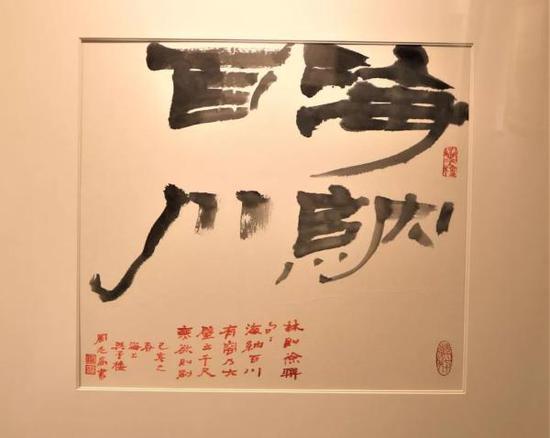 海納
百川
林則徐聯
句
海納百川
有容乃大
壁立千尺
無欲則剛
己亥之
春
海上
周志高書